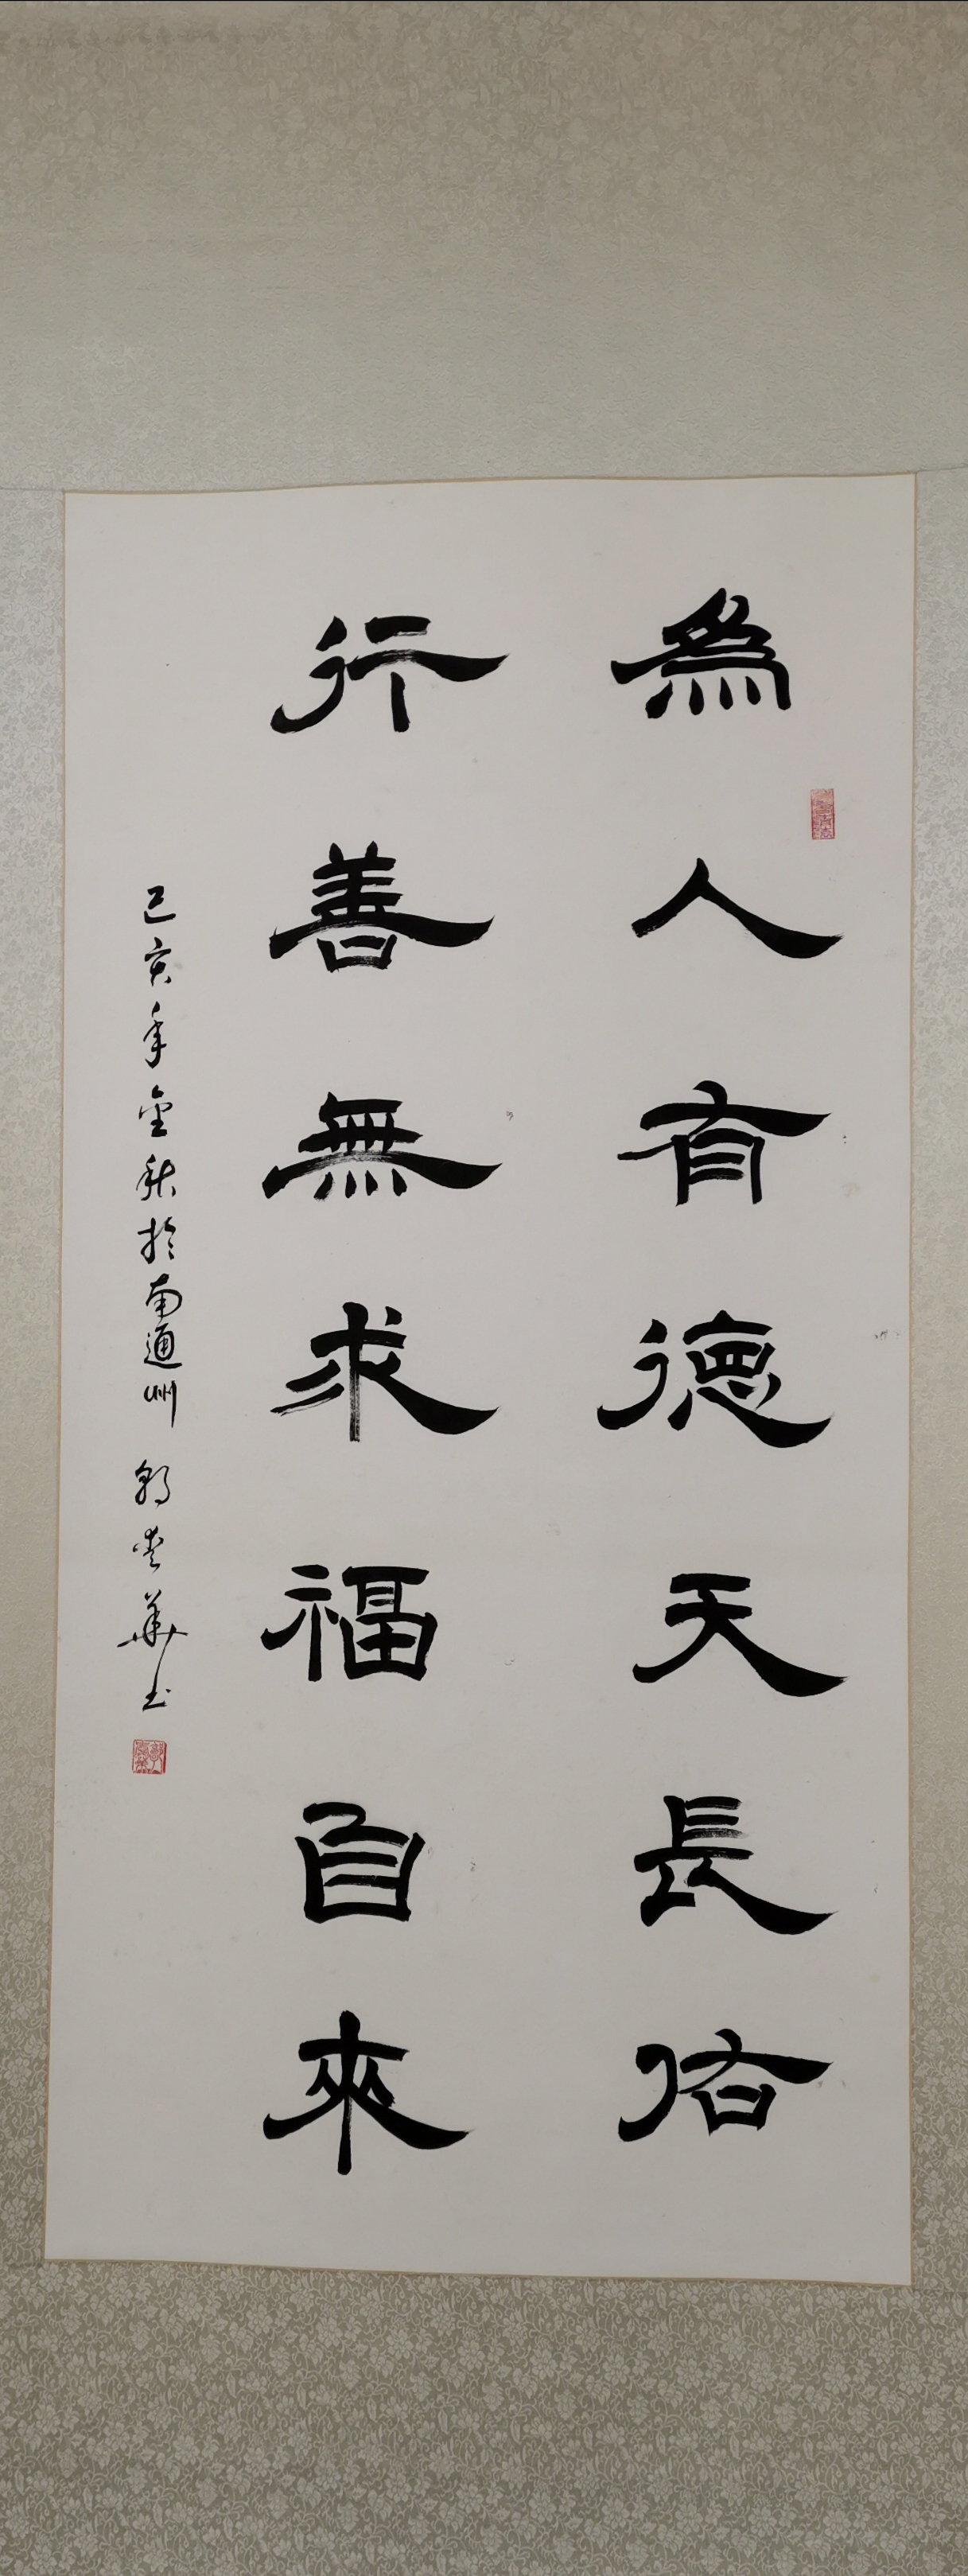 為人有德天長佑
行善無求福自來
己亥年金秋於南通州 華書